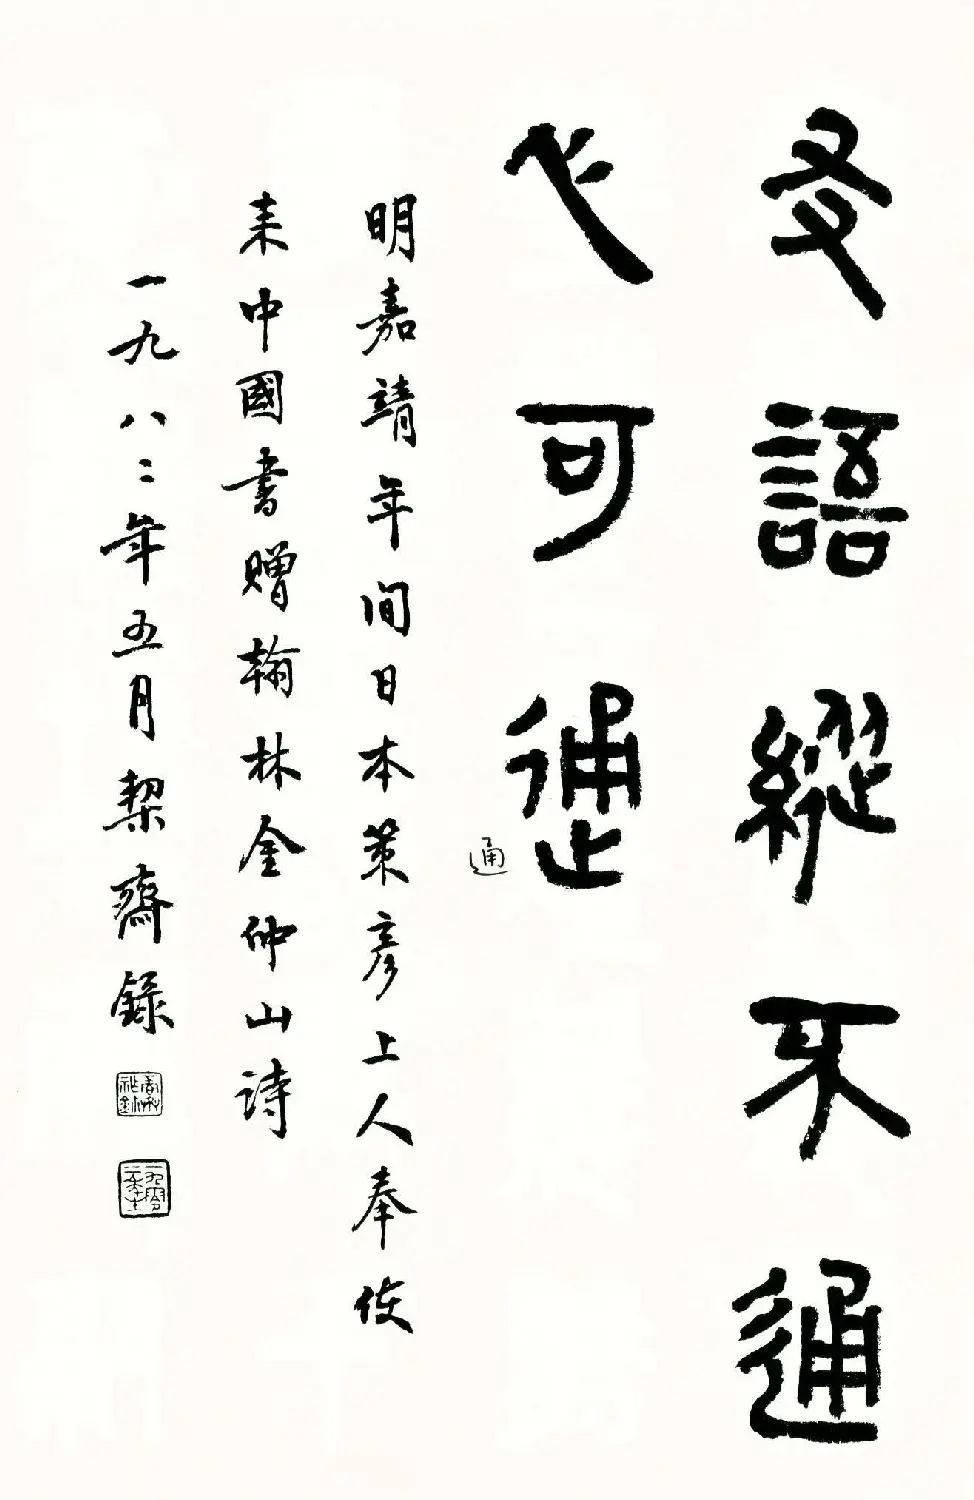 友語縱不通
心可通
通
明嘉靖年间日本策彦上人奉使
来中國書贈翰林金仲山詩
一九八二年五月栔齋録